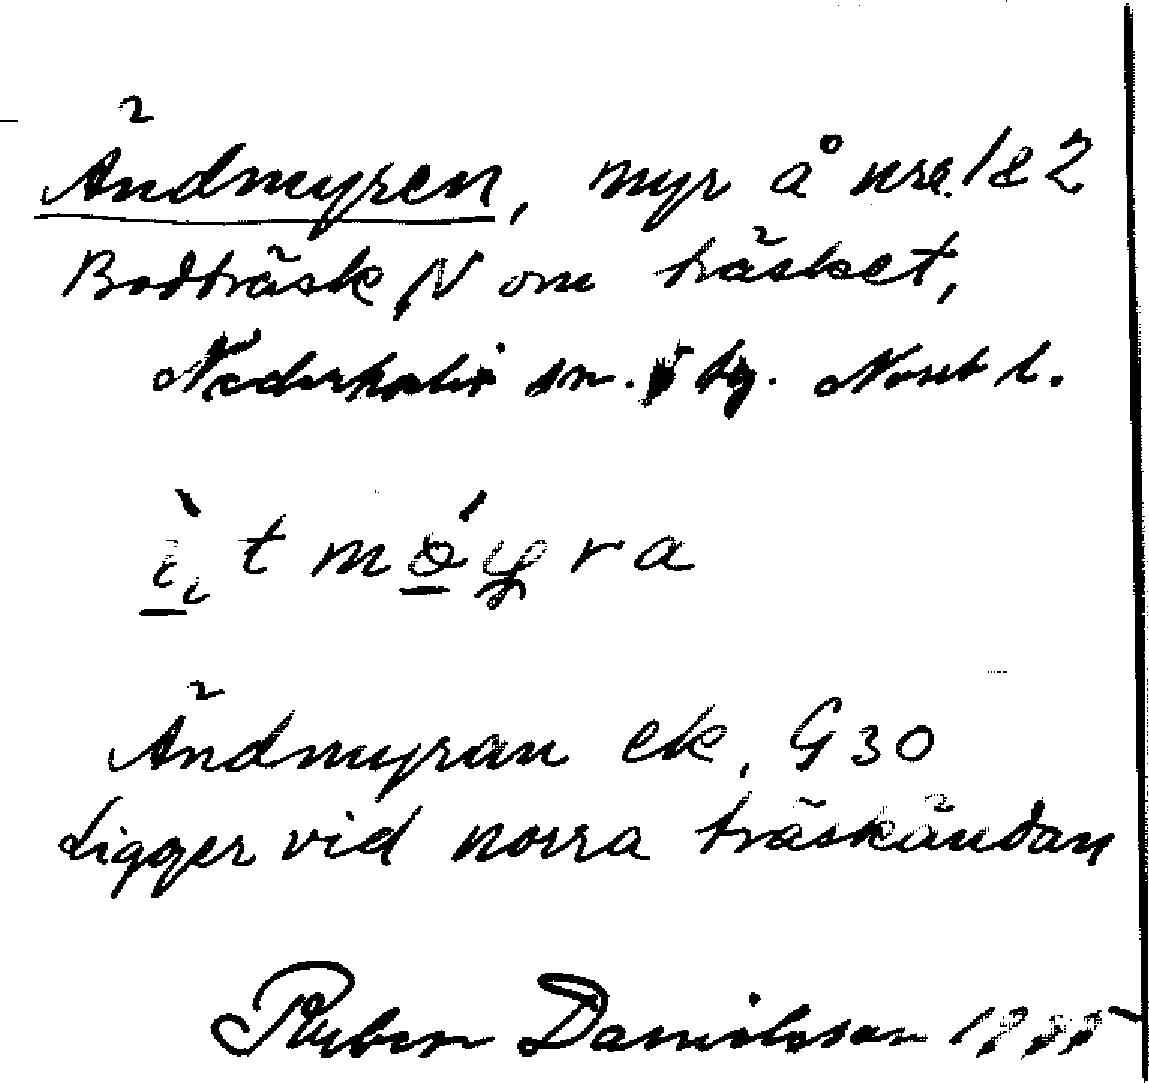 Ändmyren, myr å nre. 1 & 2
Bodträsk N om träsket,
Nederkalix sn. o tg. Norrb l.
t m ó y r a
Ändmyran ek. G 30
Ligger vid norra träskändan
Ruben Danielsson